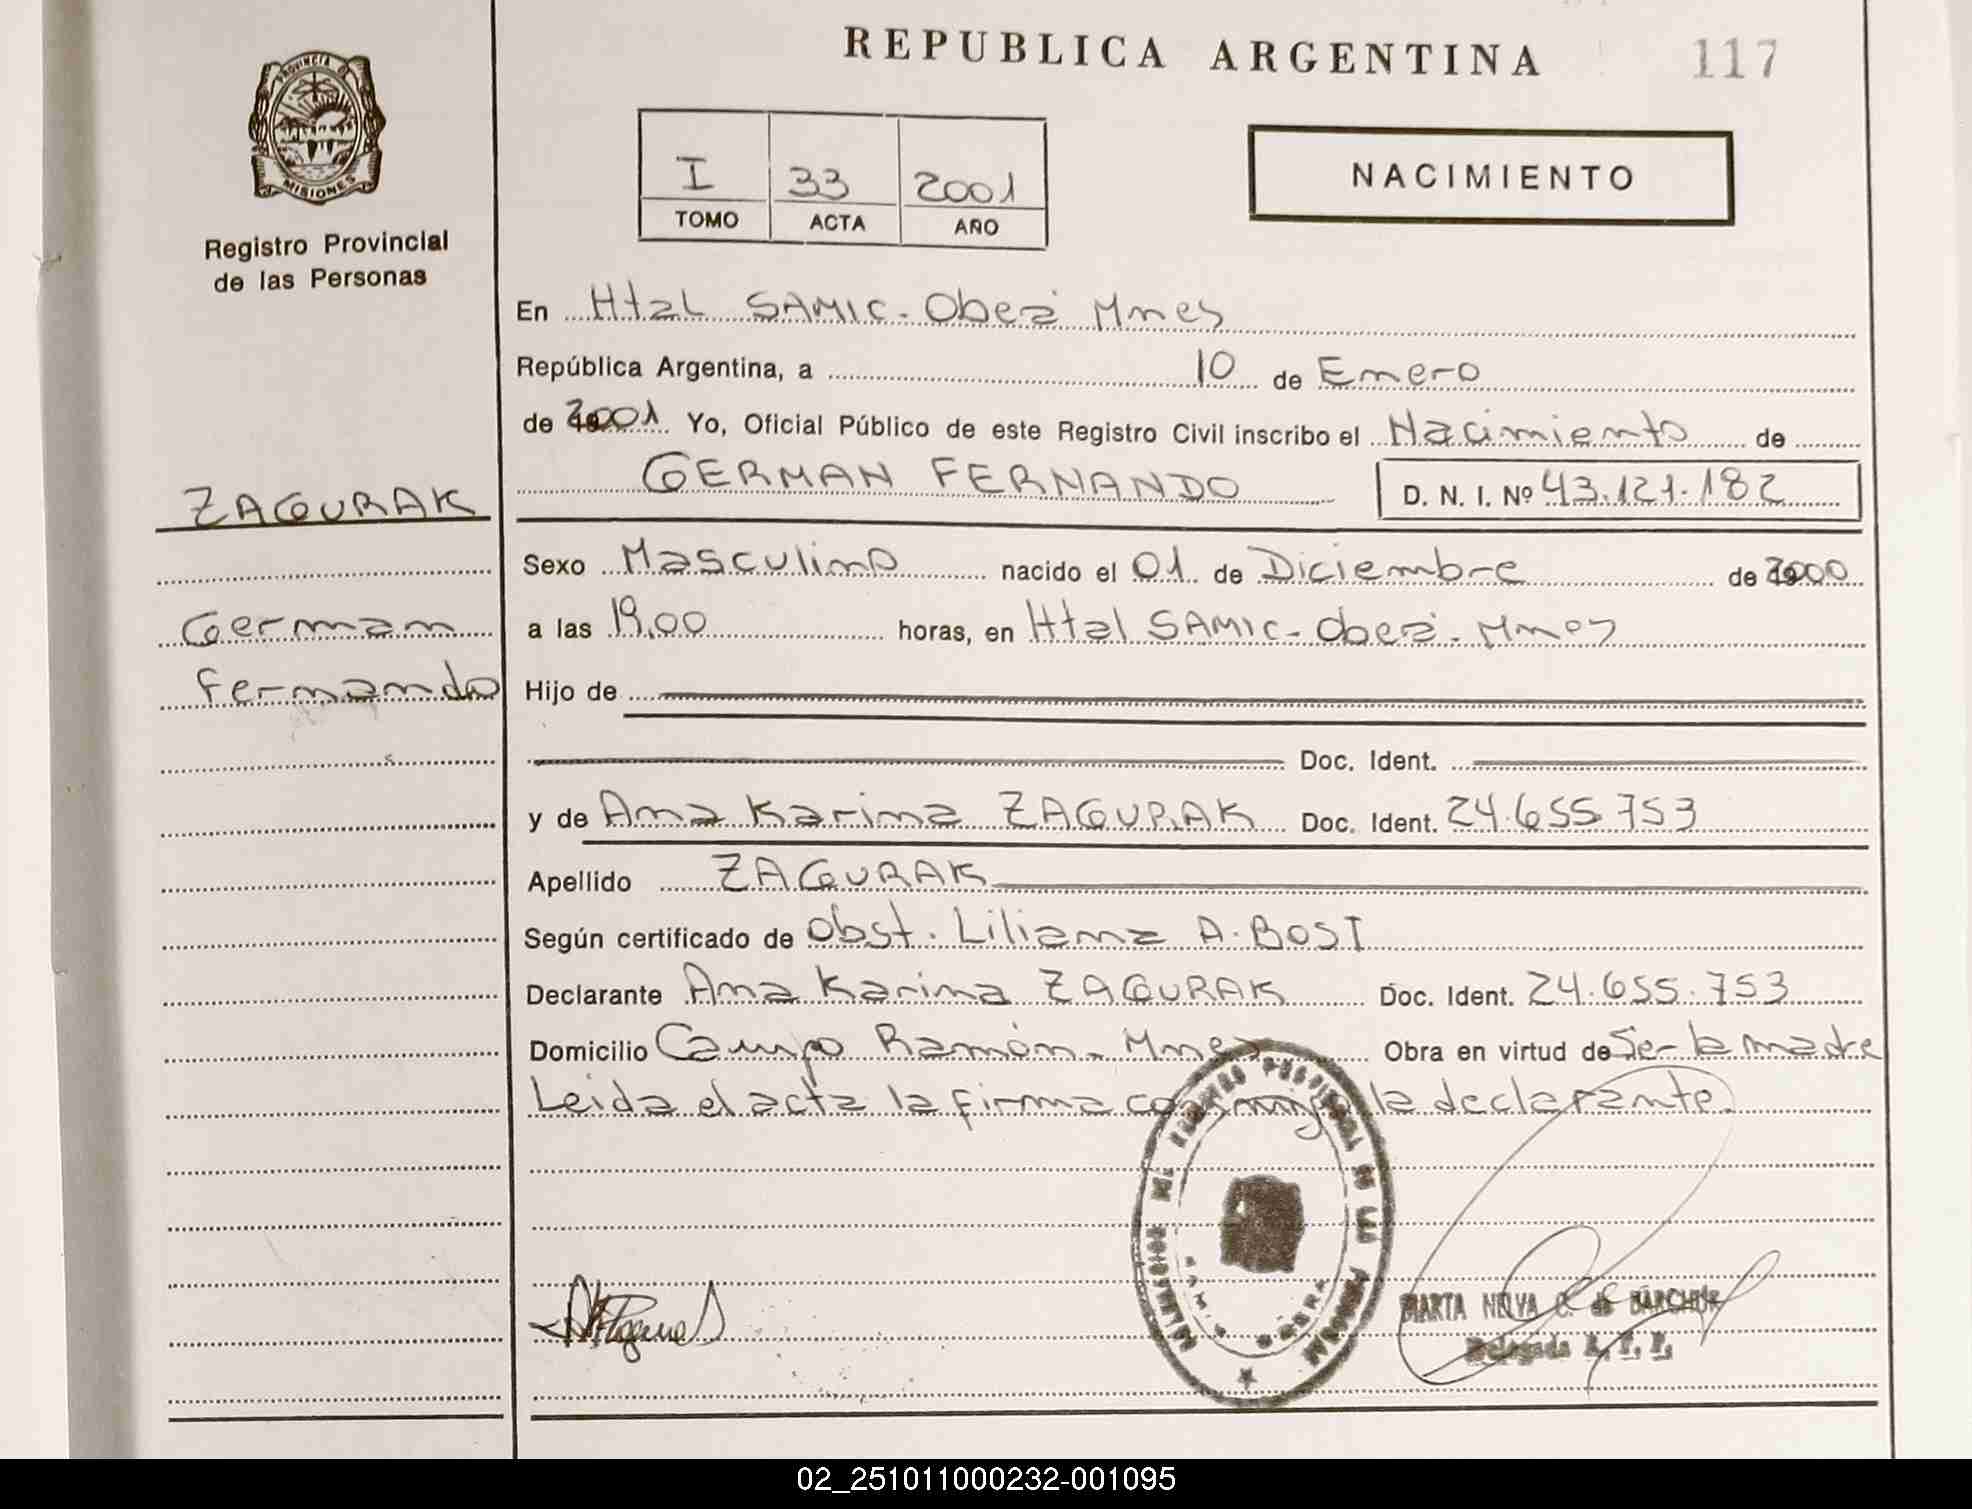 REPUBLICA ARGENTINA
117
PROVINCIA DE
MISIONES
Registro Provincial
de las Personas
I 33 2001
TOMO ACTA AÑO
NACIMIENTO
En Htal SAMIC - Oberá Mnes
República Argentina, a 10 de Enero
de 2001 Yo, Oficial Público de este Registro Civil inscribo el Nacimiento de
GERMAN FERNANDO D. N. I. Nº 43.121.182
ZAGURAK
German
Fernando
Sexo Masculino nacido el 01 de Diciembre de 2000
a las 19,00 horas, en Htal SAMIC - Oberá - Mnes
Hijo de
Doc. Ident.
y de Ana Karina ZAGURAK Doc. Ident. 24.655.753
Apellido ZAGURAK
Según certificado de Obst. Liliana A. BOSI
Declarante Ana Karina ZAGURAK Doc. Ident. 24.655.753
Domicilio Campo Ramón - Mnes Obra en virtud de Ser la madre
Leida el acta la firma conmigo la declarante.
MARTA NELVA C. de BARCHUK
Delegada R. P. P.
02_251011000232-001095